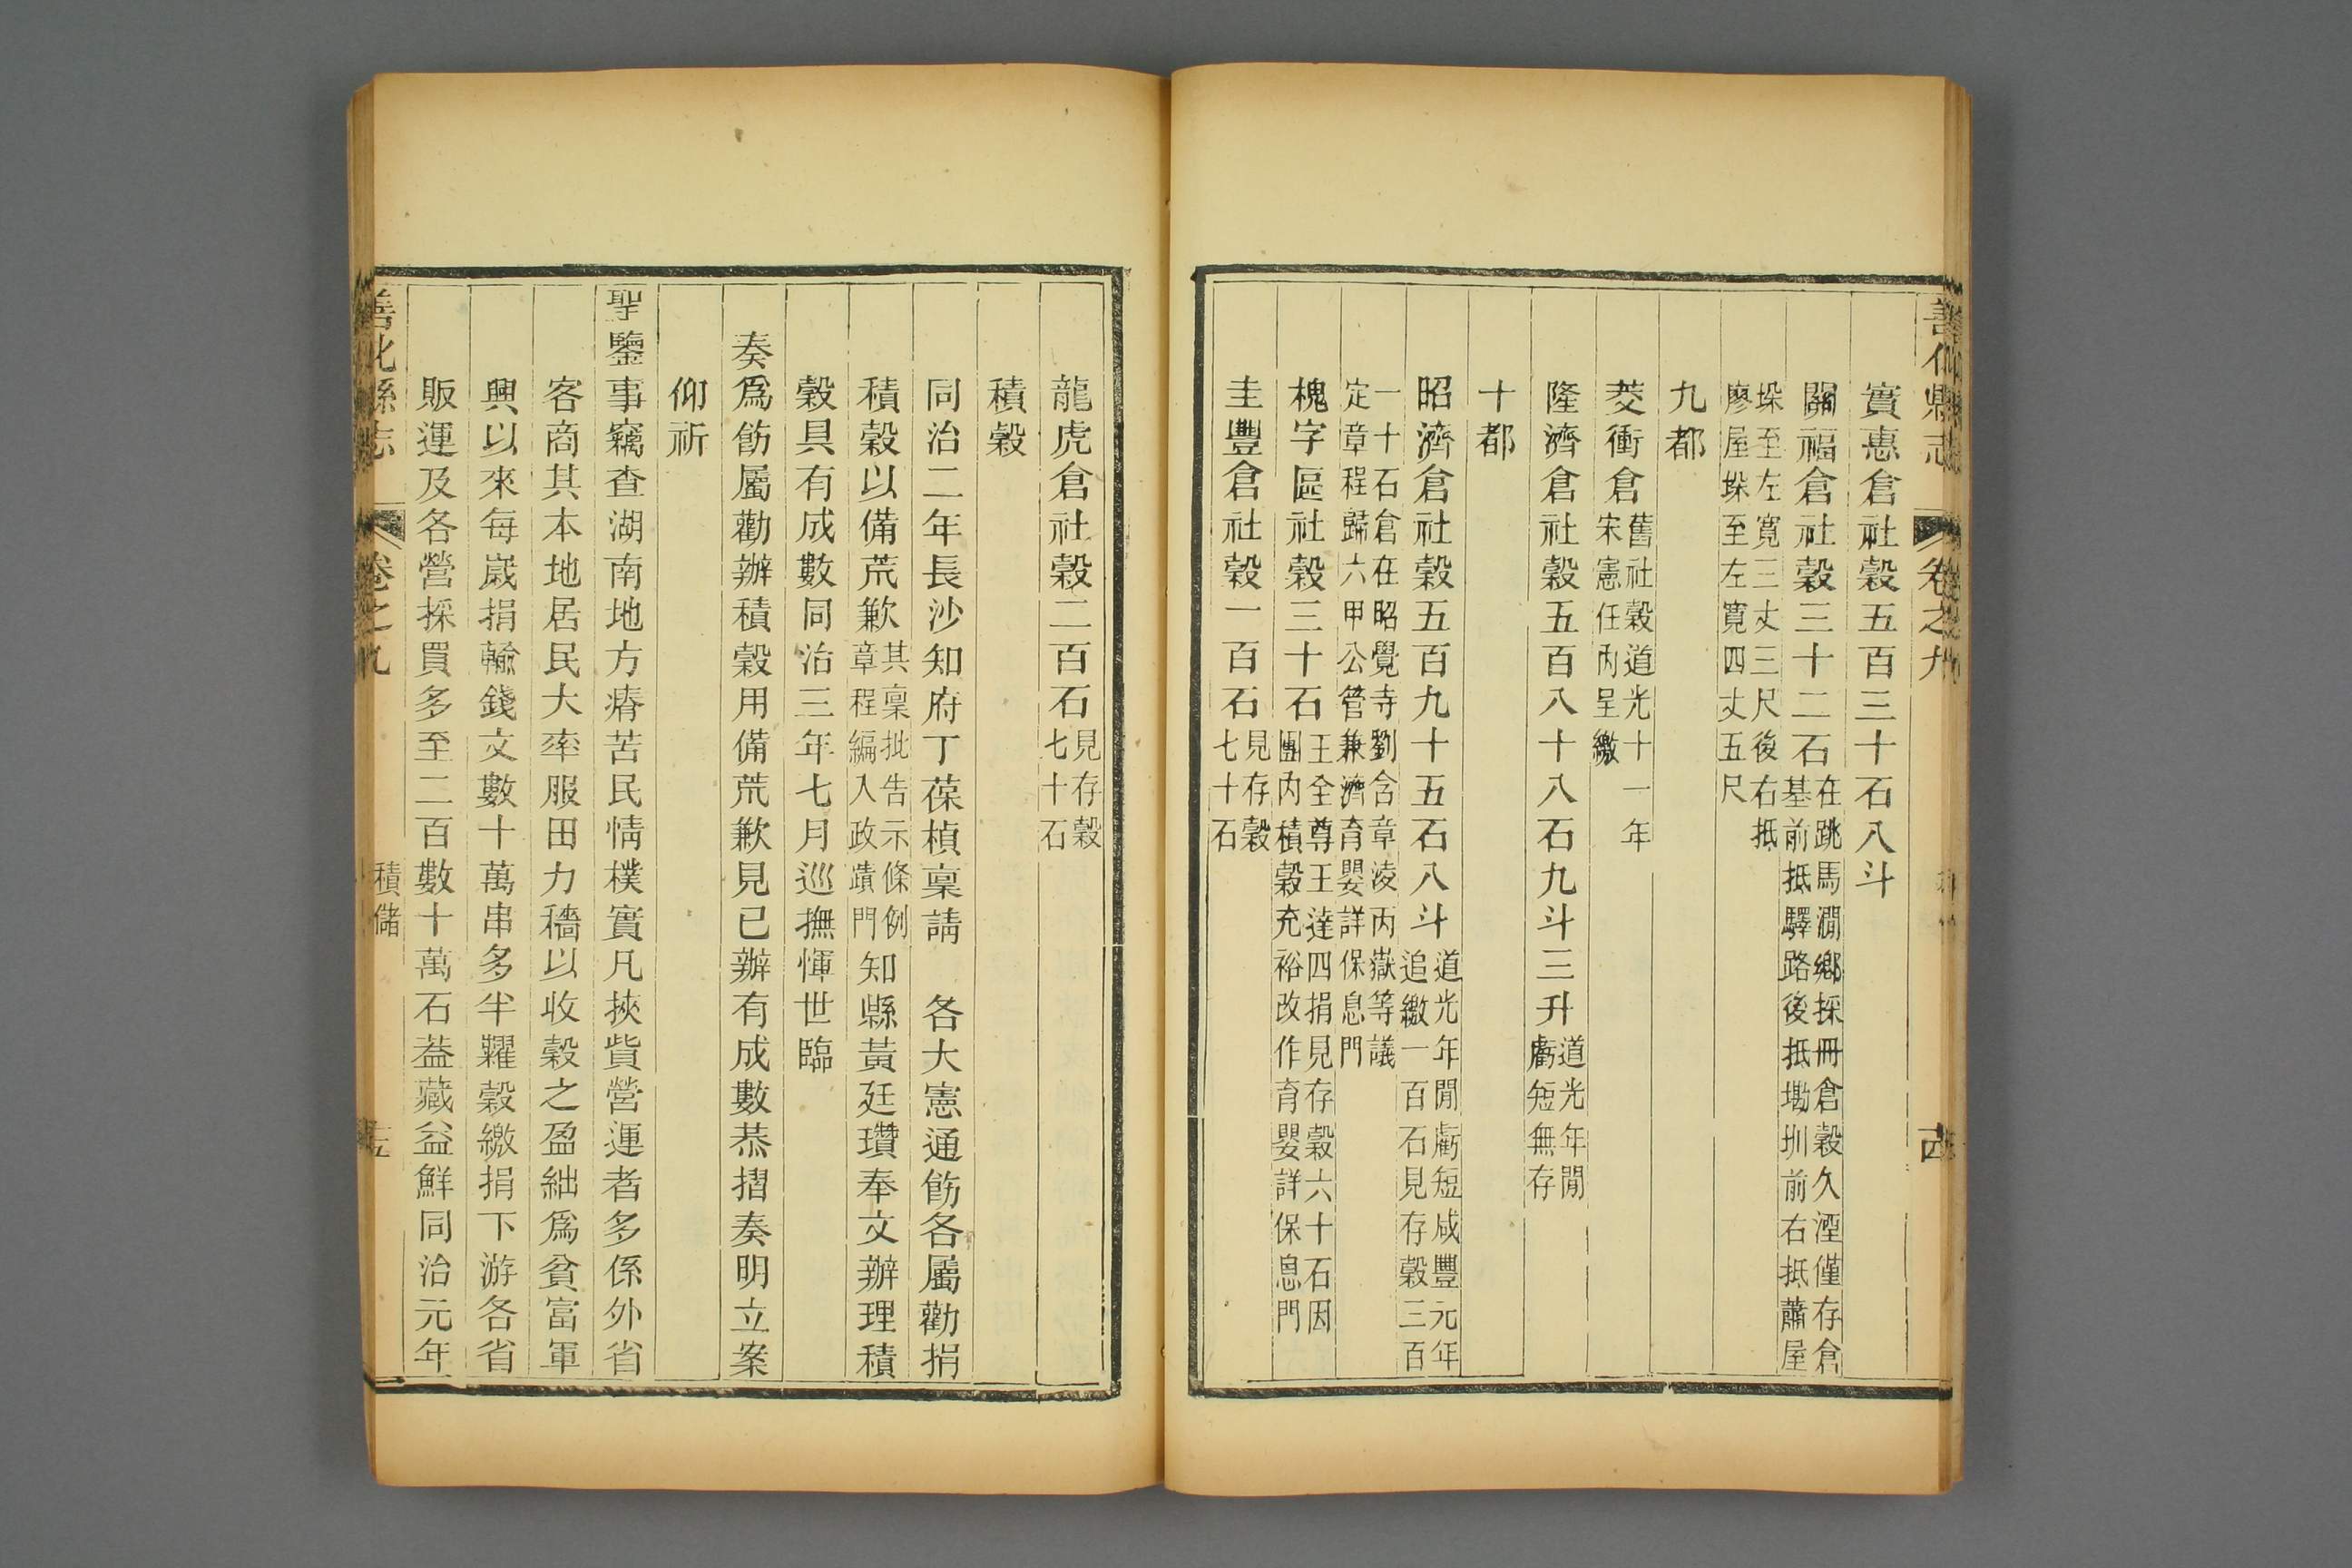 善化縣志
卷之九
實惠倉社穀五百三十石八斗
關福倉社穀三十二石在跳馬澗鄉採冊倉穀久湮僅存倉基前抵驛路後抵墈圳前右抵蕭屋
垜至左寬三丈三尺後右抵廖屋垜至左寬四丈五尺
九都
茭衝倉舊社穀道光十一年宋憲任內呈繳
隆濟倉社穀五百八十八石九斗三升道光年閒虧短無存
十都
昭濟倉社穀五百九十五石八斗道光年閒虧短咸豐元年追繳一百石見存穀三百
一十石倉在昭覺寺劉含章淩丙嶽等議定章程歸六甲公管兼濟育嬰詳保息門
槐字區社穀三十石王全尊王達四捐見存穀六十石因團內積穀充裕改作育嬰詳保息門
圭豐倉社穀一百石見存穀七十石
龍虎倉社穀二百石見存穀七十石
積穀
同治二年長沙知府丁葆楨稟請　各大憲通飭各屬勸捐
積穀以備荒歉其稟批告示條例章程編入政蹟門知縣黃廷瓚奉文辦理積
穀具有成數同治三年七月巡撫惲世臨
奏爲飭屬勸辦積穀用備荒歉見已辦有成數恭摺奏明立案
仰祈
聖鑒事竊查湖南地方瘠苦民情樸實凡挾貲營運者多係外省
客商其本地居民大率服田力穡以收穀之盈絀爲貧富軍
興以來每歲捐輸錢文數十萬串多半糶穀繳捐下游各省
販運及各營採買多至二百數十萬石葢藏益鮮同治元年
善化縣志
卷之九
積儲